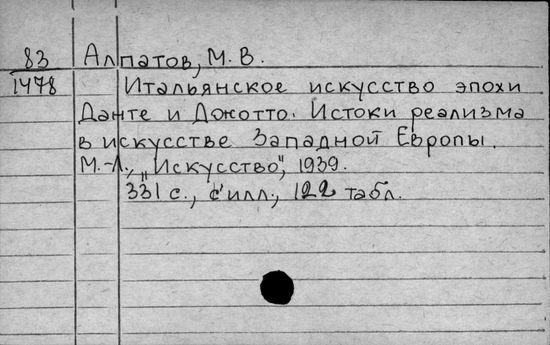 83 Алпатов, М. В.
1478 Итальянское искусство эпохи
Данте и Джотто. Истоки реализма
в искусстве Западной Европы.
М.-Л., „Искусство", 1939.
331 с., с илл., 122 табл.